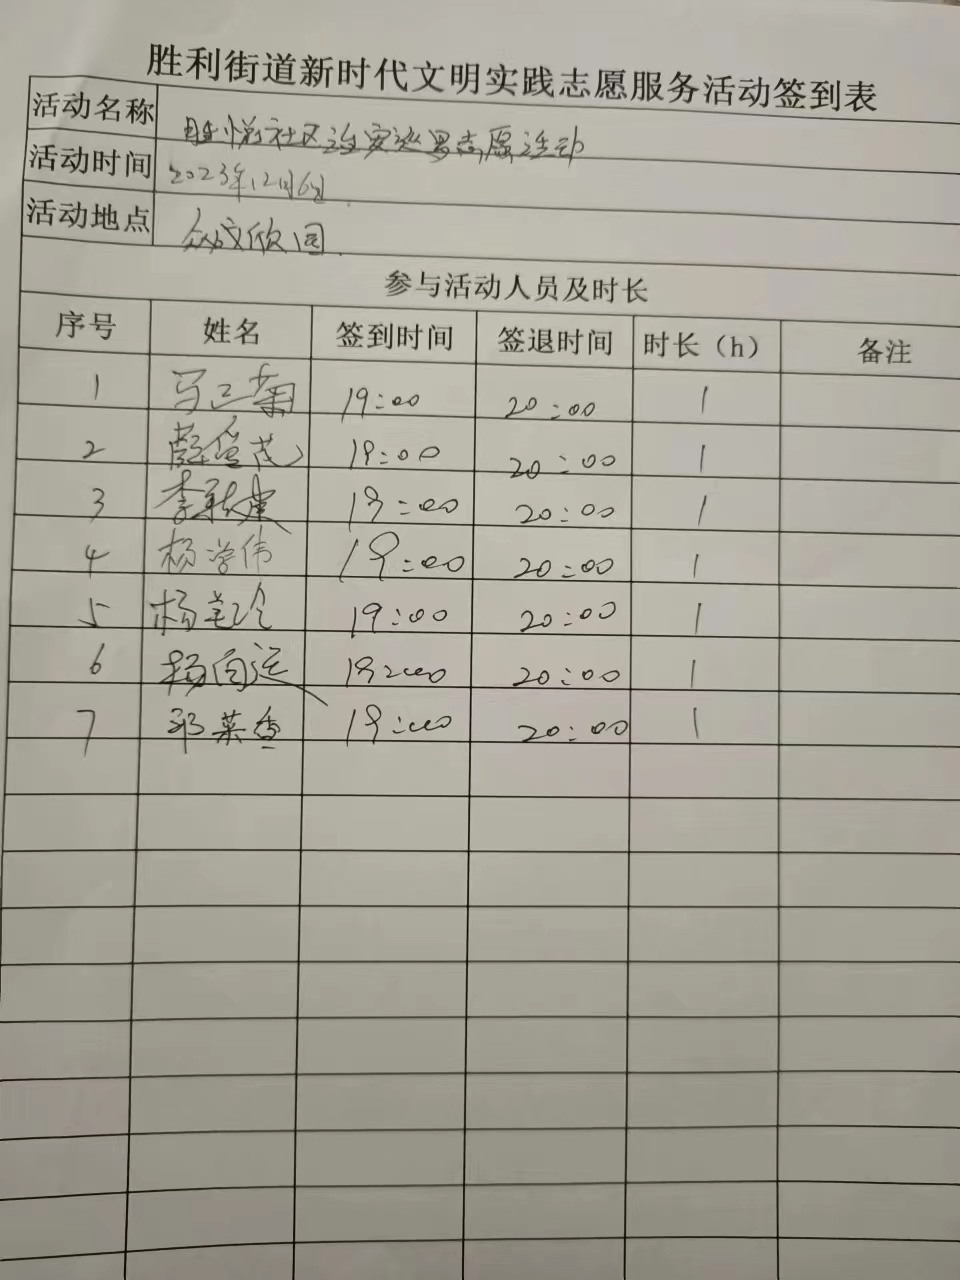 胜利街道新时代文明实践志愿服务活动签到表
活动名称 胜悦社区治安巡逻志愿活动
活动时间 2023年12月6日.
活动地点 众成欣园.
参与活动人员及时长
序号 姓名 签到时间 签退时间 时长（h） 备注
1 19:00 20:00 1
2 19:00 20:00 1
3 19:00 20:00 1
4 杨学伟 19:00 20:00 1
5 19:00 20:00 1
6 杨向运 19:00 20:00 1
7 19:00 20:00 1